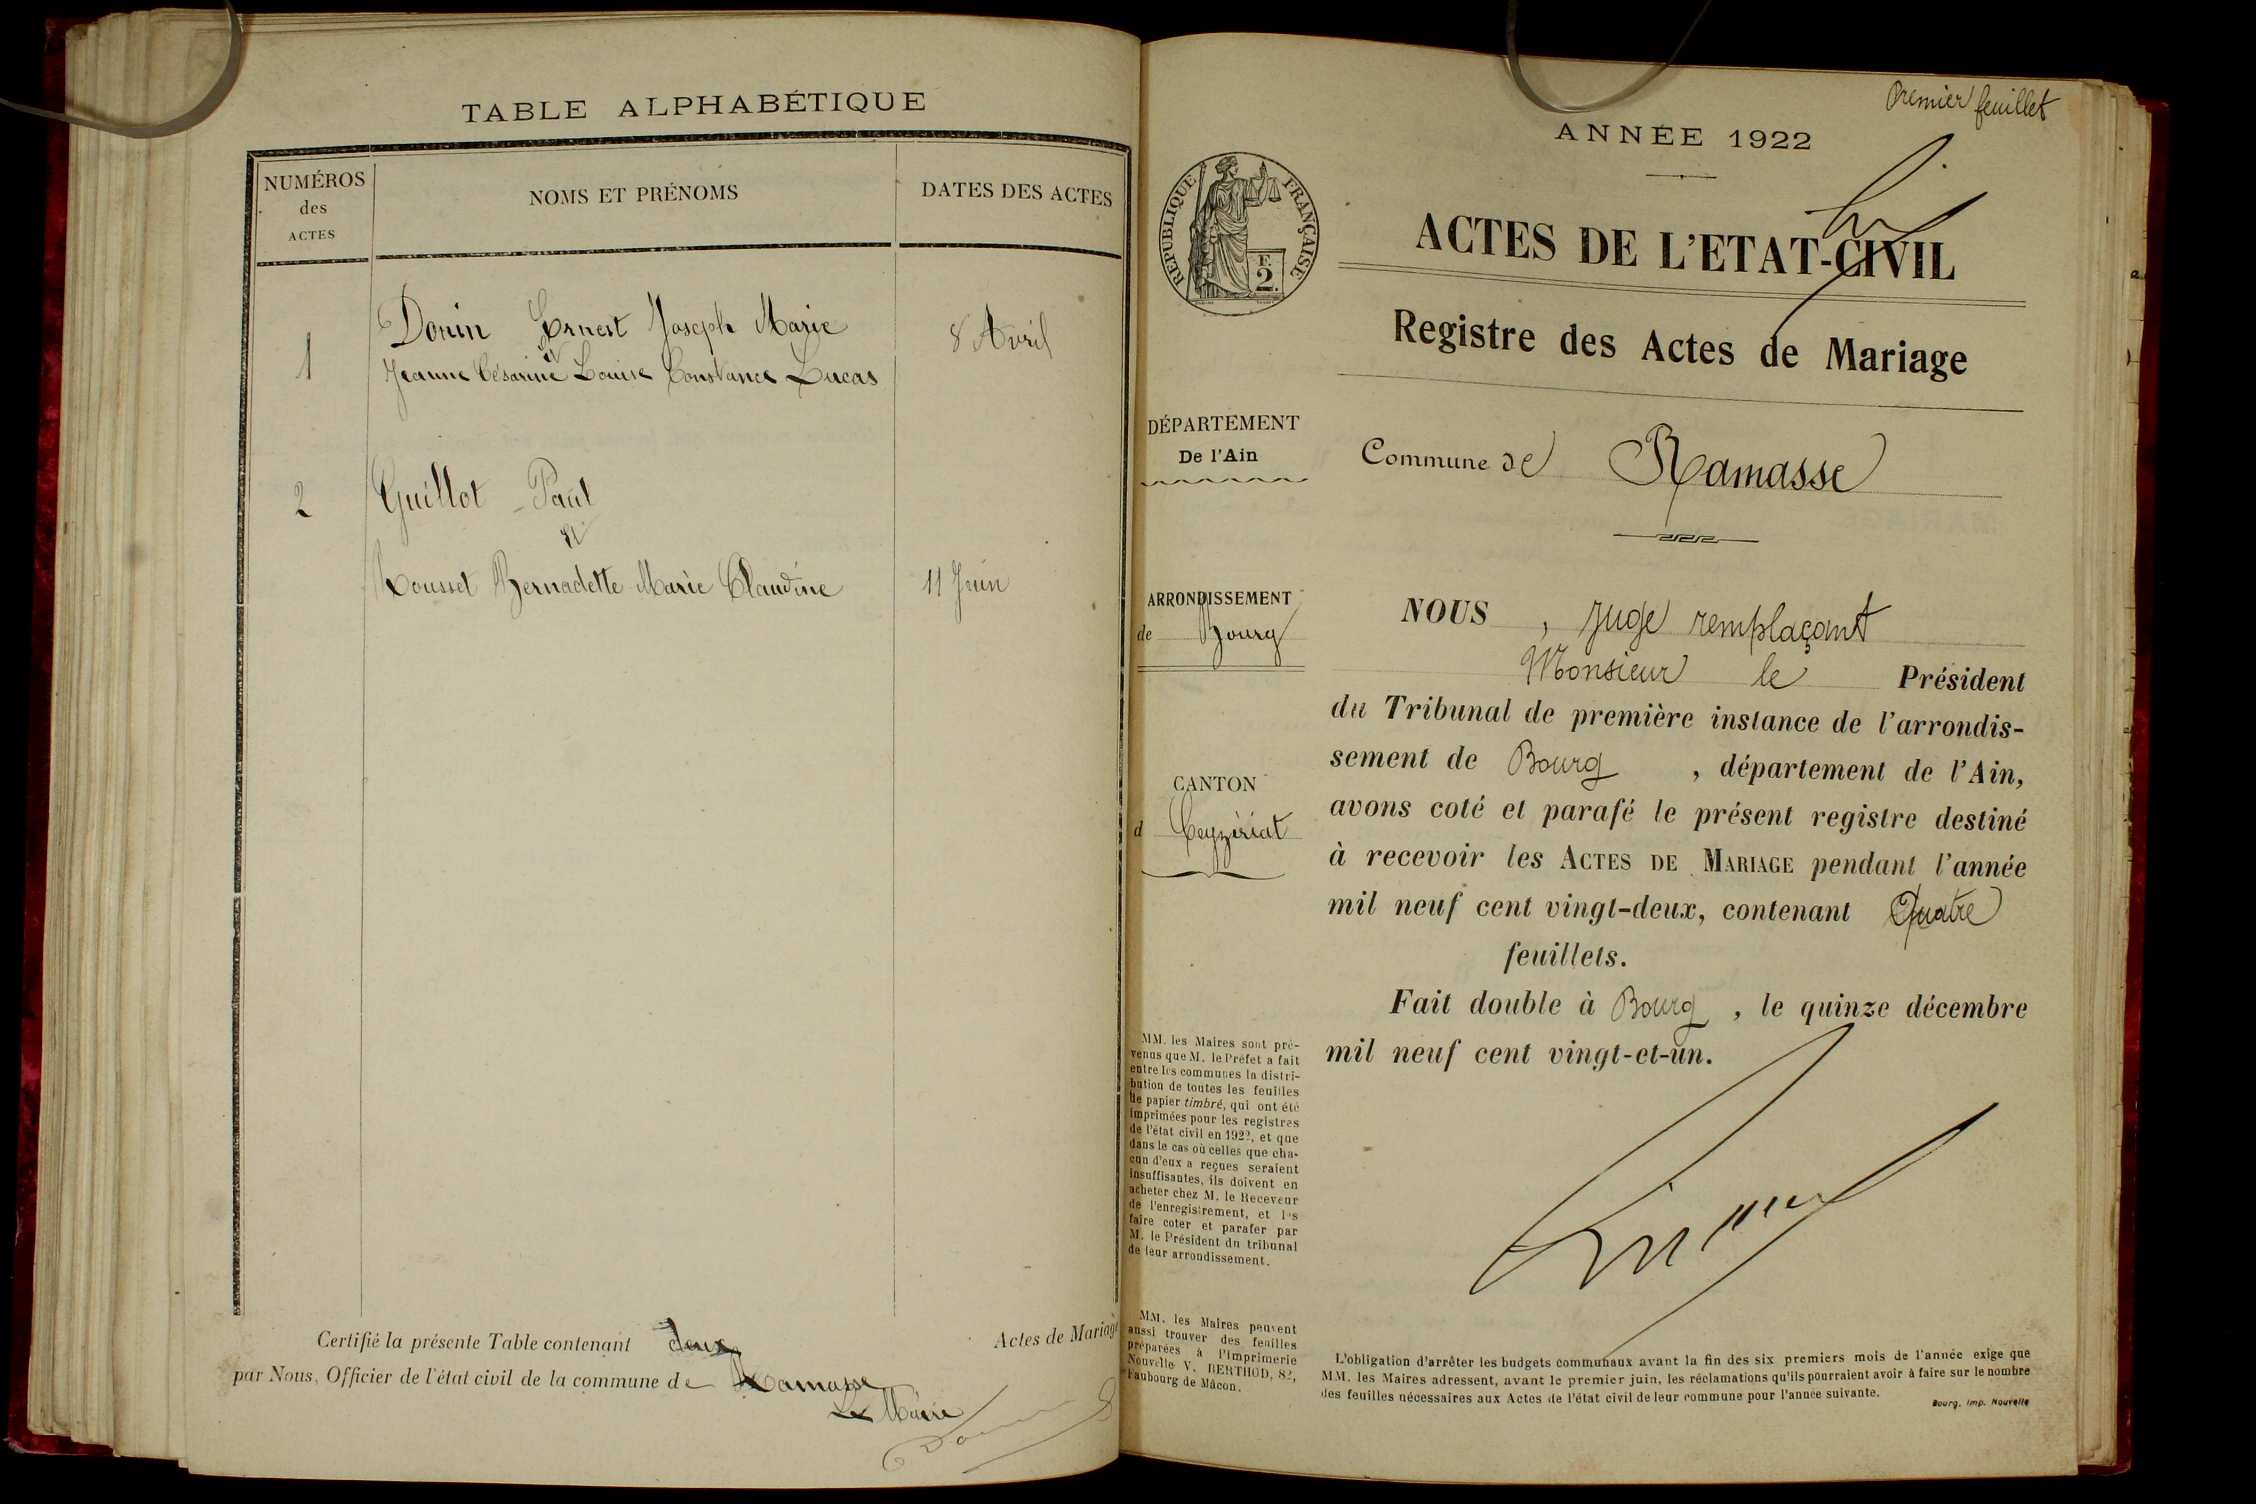 TABLE ALPHABÉTIQUE
NUMÉROS
des
ACTES
NOMS ET PRÉNOMS
DATES DES ACTES
1
Donin Ernest Joseph Marie
et
Jeanne Césarine Louise Constance Lucas
8 Avril
2
Guillot - Paul
et
Rousset Bernadette Marie Claudine
11 Juin
Certifié la présente Table contenant deux Actes de Mariage
par Nous, Officier de l'état civil de la commune de Ramasse
Le Maire
Premier feuillet
ANNÉE 1922
RÉPUBLIQUE FRANÇAISE
F.
2.
ACTES DE L'ETAT-CIVIL
Registre des Actes de Mariage
DÉPARTEMENT
De l'Ain
Commune de Ramasse
ARRONDISSEMENT
de Bourg
CANTON
d Ceyzériat
NOUS , Juge remplaçant
Monsieur le Président
du Tribunal de première instance de l'arrondis-
sement de Bourg , département de l'Ain,
avons coté et parafé le présent registre destiné
à recevoir les ACTES DE MARIAGE pendant l'année
mil neuf cent vingt-deux, contenant Quatre
feuillets.
Fait double à Bourg , le quinze décembre
mil neuf cent vingt-et-un.
MM. les Maires sont pré-
venus que M. le Préfet a fait
entre les communes la distri-
bution de toutes les feuilles
de papier timbré, qui ont été
imprimées pour les registres
de l'état civil en 1922, et que
dans le cas où celles que cha-
cun d'eux a reçues seraient
insuffisantes, ils doivent en
acheter chez M. le Receveur
de l'enregistrement, et les
faire coter et parafer par
M. le Président du tribunal
de leur arrondissement.
MM. les Maires peuvent
aussi trouver des feuilles
préparées à l'Imprimerie
Nouvelle V. BERTHOD, 82,
Faubourg de Mâcon.
L'obligation d'arrêter les budgets communaux avant la fin des six premiers mois de l'année exige que
MM. les Maires adressent, avant le premier juin, les réclamations qu'ils pourraient avoir à faire sur le nombre
des feuilles nécessaires aux Actes de l'état civil de leur commune pour l'année suivante.
Bourg, Imp. Nouvelle